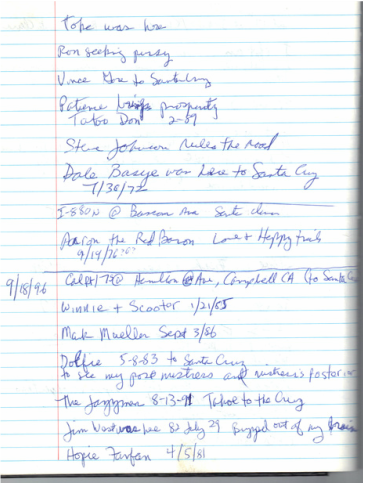 Tope was here
Ron seeking pussy
Vince to Santa Cruz
Patience brings prosperity
Tatoo Don 2-89
Steve Johnson rules the road
Dale Basye was here to Santa Cruz
7/30/72
I-880N @ Bascom Ave Santa Clara
Aaron the Red Baron Love + Happy trails
9/19/76
9/18/96 @ Hamilton Ave, Campbell CA (to Santa
Winnie + Scooter 1/21/85
Mark Mueller Sept 3/86
5-8-83 to Santa Cruz
to see my post mistress and mistress's posterior
The Jazzman 8-13-91 Tahoe to the Cruz
Jim was here 82 July 29 Bugged out of my brain
Hopie Farfan 4/5/81